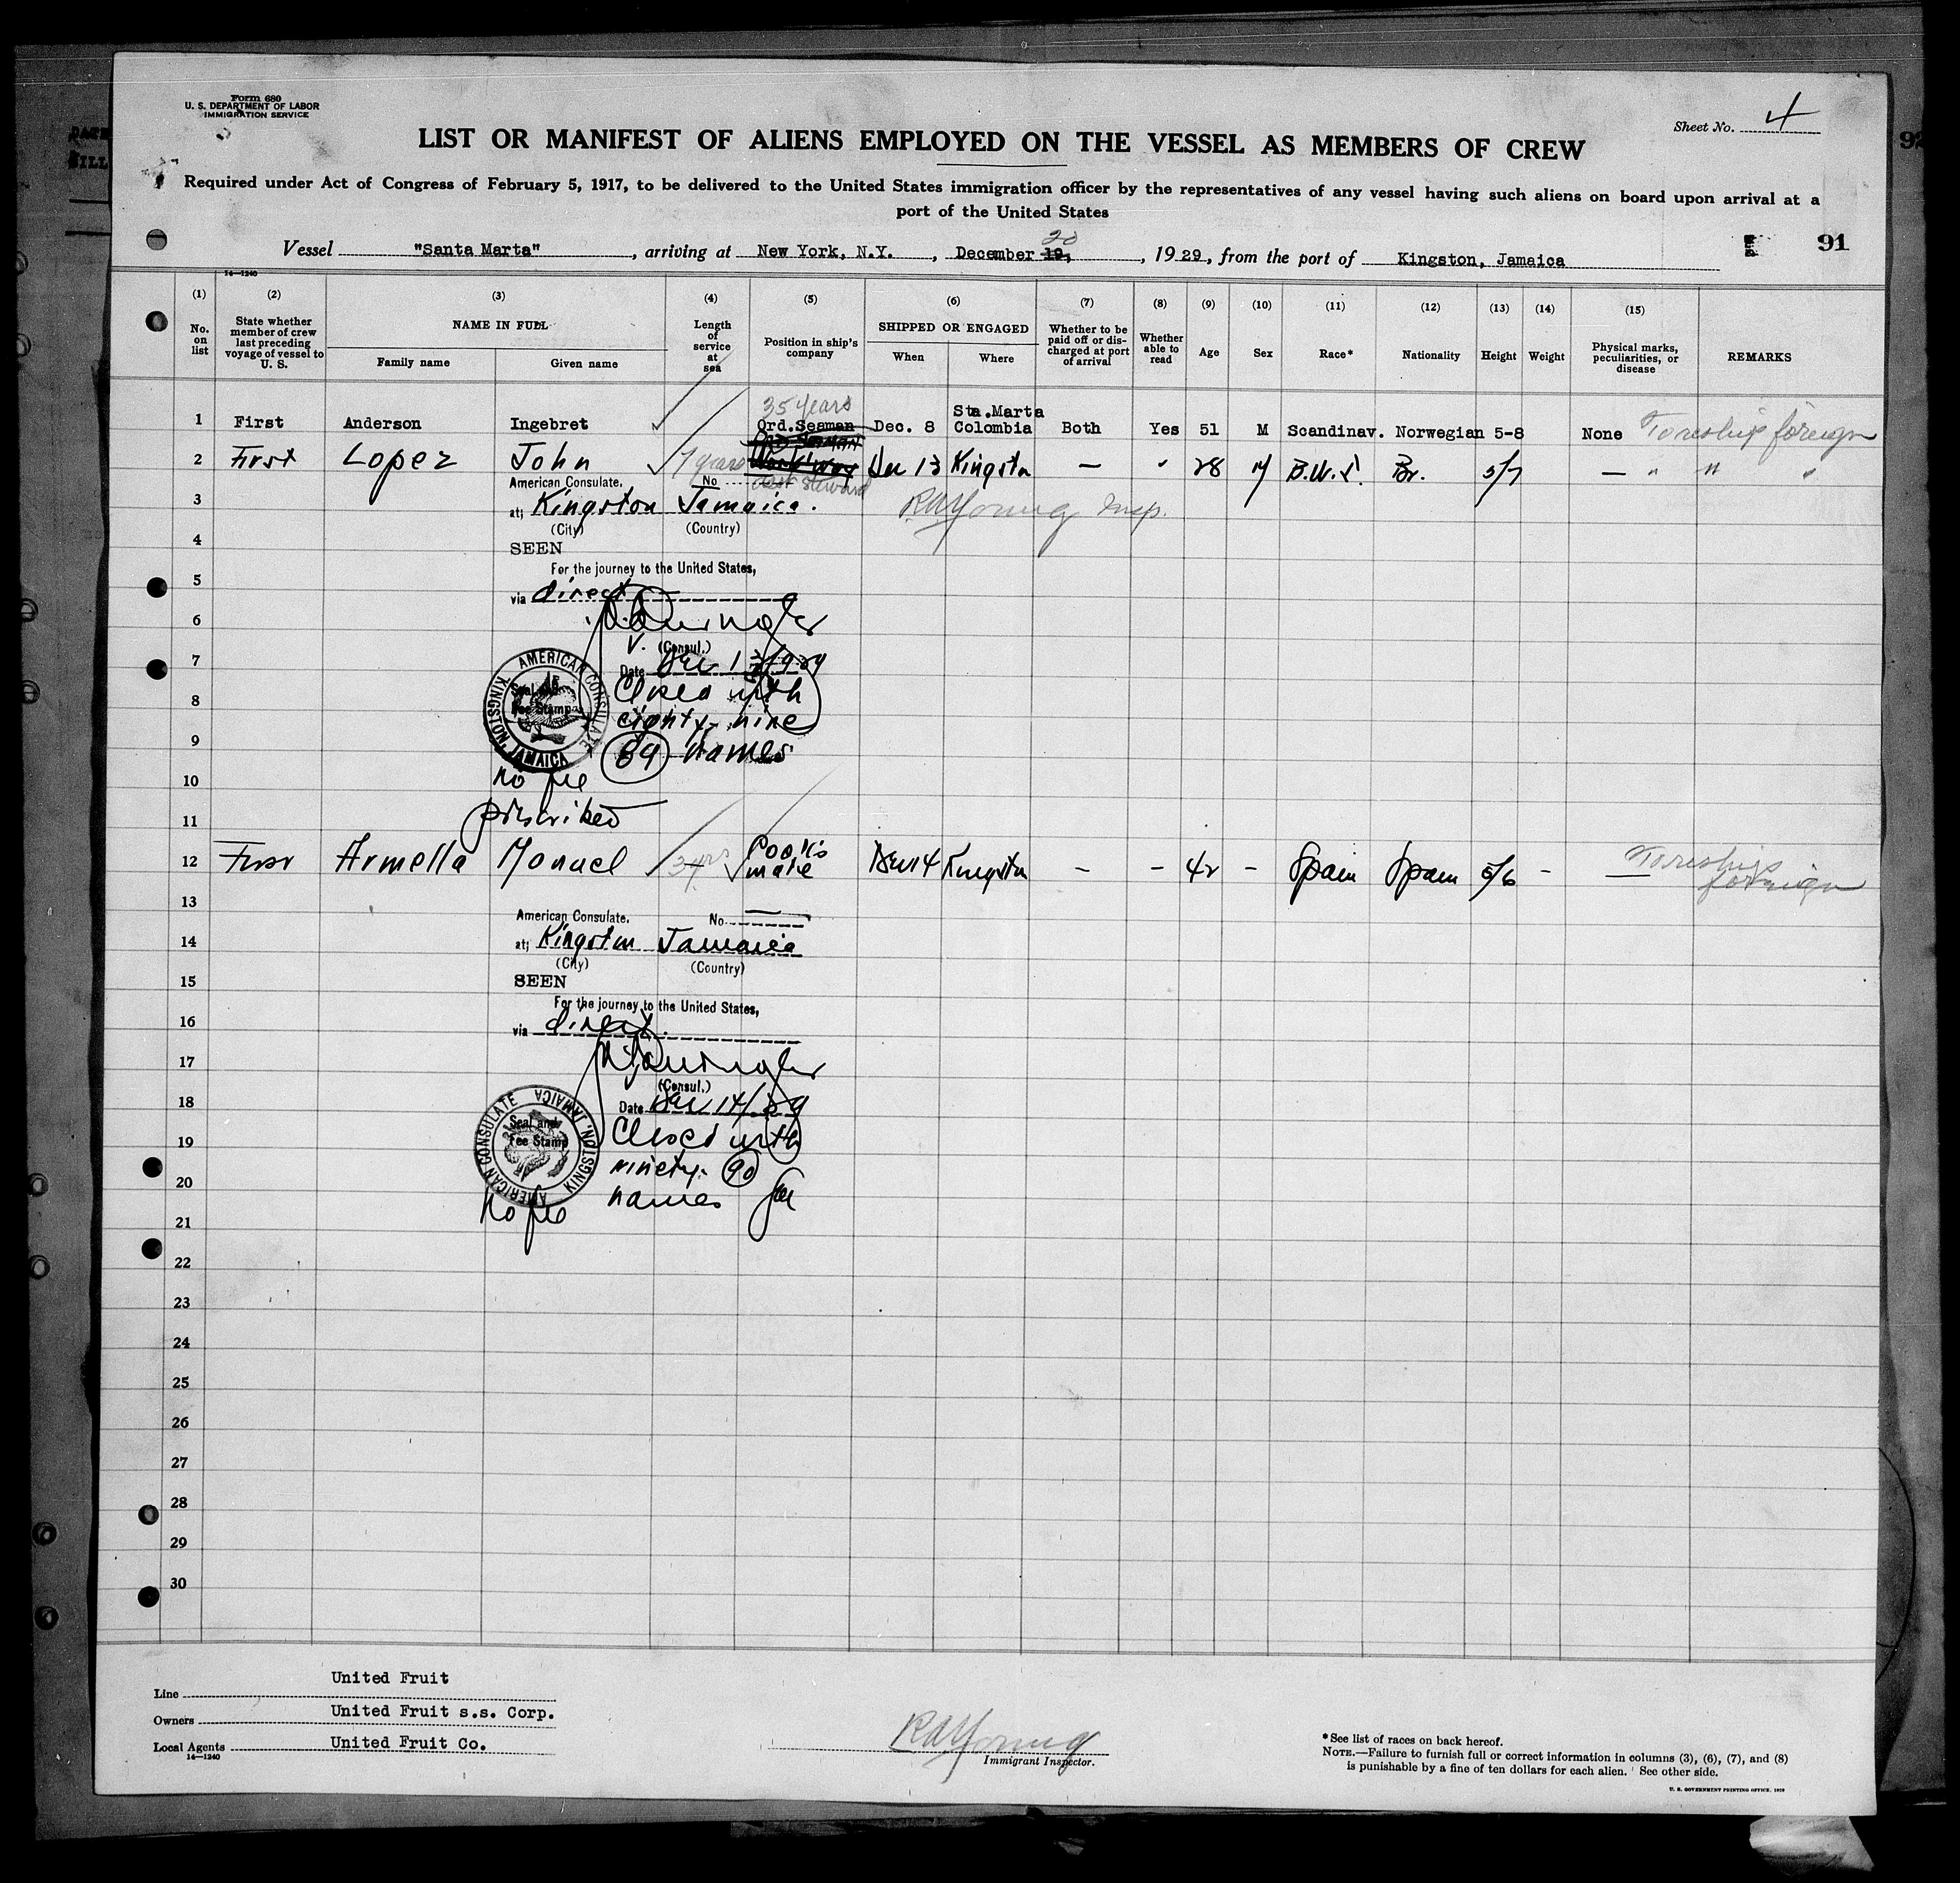 Form 680
U. S. DEPARTMENT OF LABOR
IMMIGRATION SERVICE
Sheet No. 4
LIST OR MANIFEST OF ALIENS EMPLOYED ON THE VESSEL AS MEMBERS OF CREW
Required under Act of Congress of February 5, 1917, to be delivered to the United States immigration officer by the representatives of any vessel having such aliens on board upon arrival at a
port of the United States
Vessel "Santa Marta", arriving at New York, N.Y., December 19, 20, 1929, from the port of Kingston, Jamaica
91
14—1240
(1) (2) (3) (4) (5) (6) (7) (8) (9) (10) (11) (12) (13) (14) (15)
No. on list
State whether member of crew last preceding voyage of vessel to U. S.
NAME IN FULL
Family name
Given name
Length of service at sea
Position in ship's company
SHIPPED OR ENGAGED
When
Where
Whether to be paid off or discharged at port of arrival
Whether able to read
Age
Sex
Race*
Nationality
Height
Weight
Physical marks, peculiarities, or disease
REMARKS
1 First Anderson Ingebret 35 years Ord.Seaman Dec. 8 Sta.Marta Colombia Both Yes 51 M Scandinav. Norwegian 5-8 None To reship foreign
2 First Lopez John 7 years Asst steward Dec 13 Kingston — " 28 M B.W.I. Br. 5/7 — " " "
American Consulate. No
3
at; Kingston Jamaica.
RAYoung Insp.
(City) (Country)
4
SEEN
For the journey to the United States,
5
via direct
6
V. (Consul.)
7
Date Dec 13/1929
AMERICAN CONSULATE
KINGSTON, JAMAICA
Seal and
Fee Stamp
8
Closed with
eighty-nine
9
(89) names
10
no fee
prescribed
11
12 First Armella Manuel 3 yrs Cook's mate Dec 14 Kingston - - 42 - Spain Spain 5/6 - To reship foreign
13
American Consulate. No.
14
at; Kingston Jamaica
(City) (Country)
15
SEEN
For the journey to the United States,
16
via direct.
17
(Consul.)
18
Date Dec 14/29
AMERICAN CONSULATE
KINGSTON, JAMAICA
Seal and
Fee Stamp
19
Closed with
ninety. (90)
20
names
no fee
21
22
23
24
25
26
27
28
29
30
Line United Fruit
Owners United Fruit s.s. Corp.
Local Agents United Fruit Co.
14—1240
RAYoung
Immigrant Inspector.
*See list of races on back hereof.
NOTE.—Failure to furnish full or correct information in columns (3), (6), (7), and (8)
is punishable by a fine of ten dollars for each alien. See other side.
U. S. GOVERNMENT PRINTING OFFICE, 1929